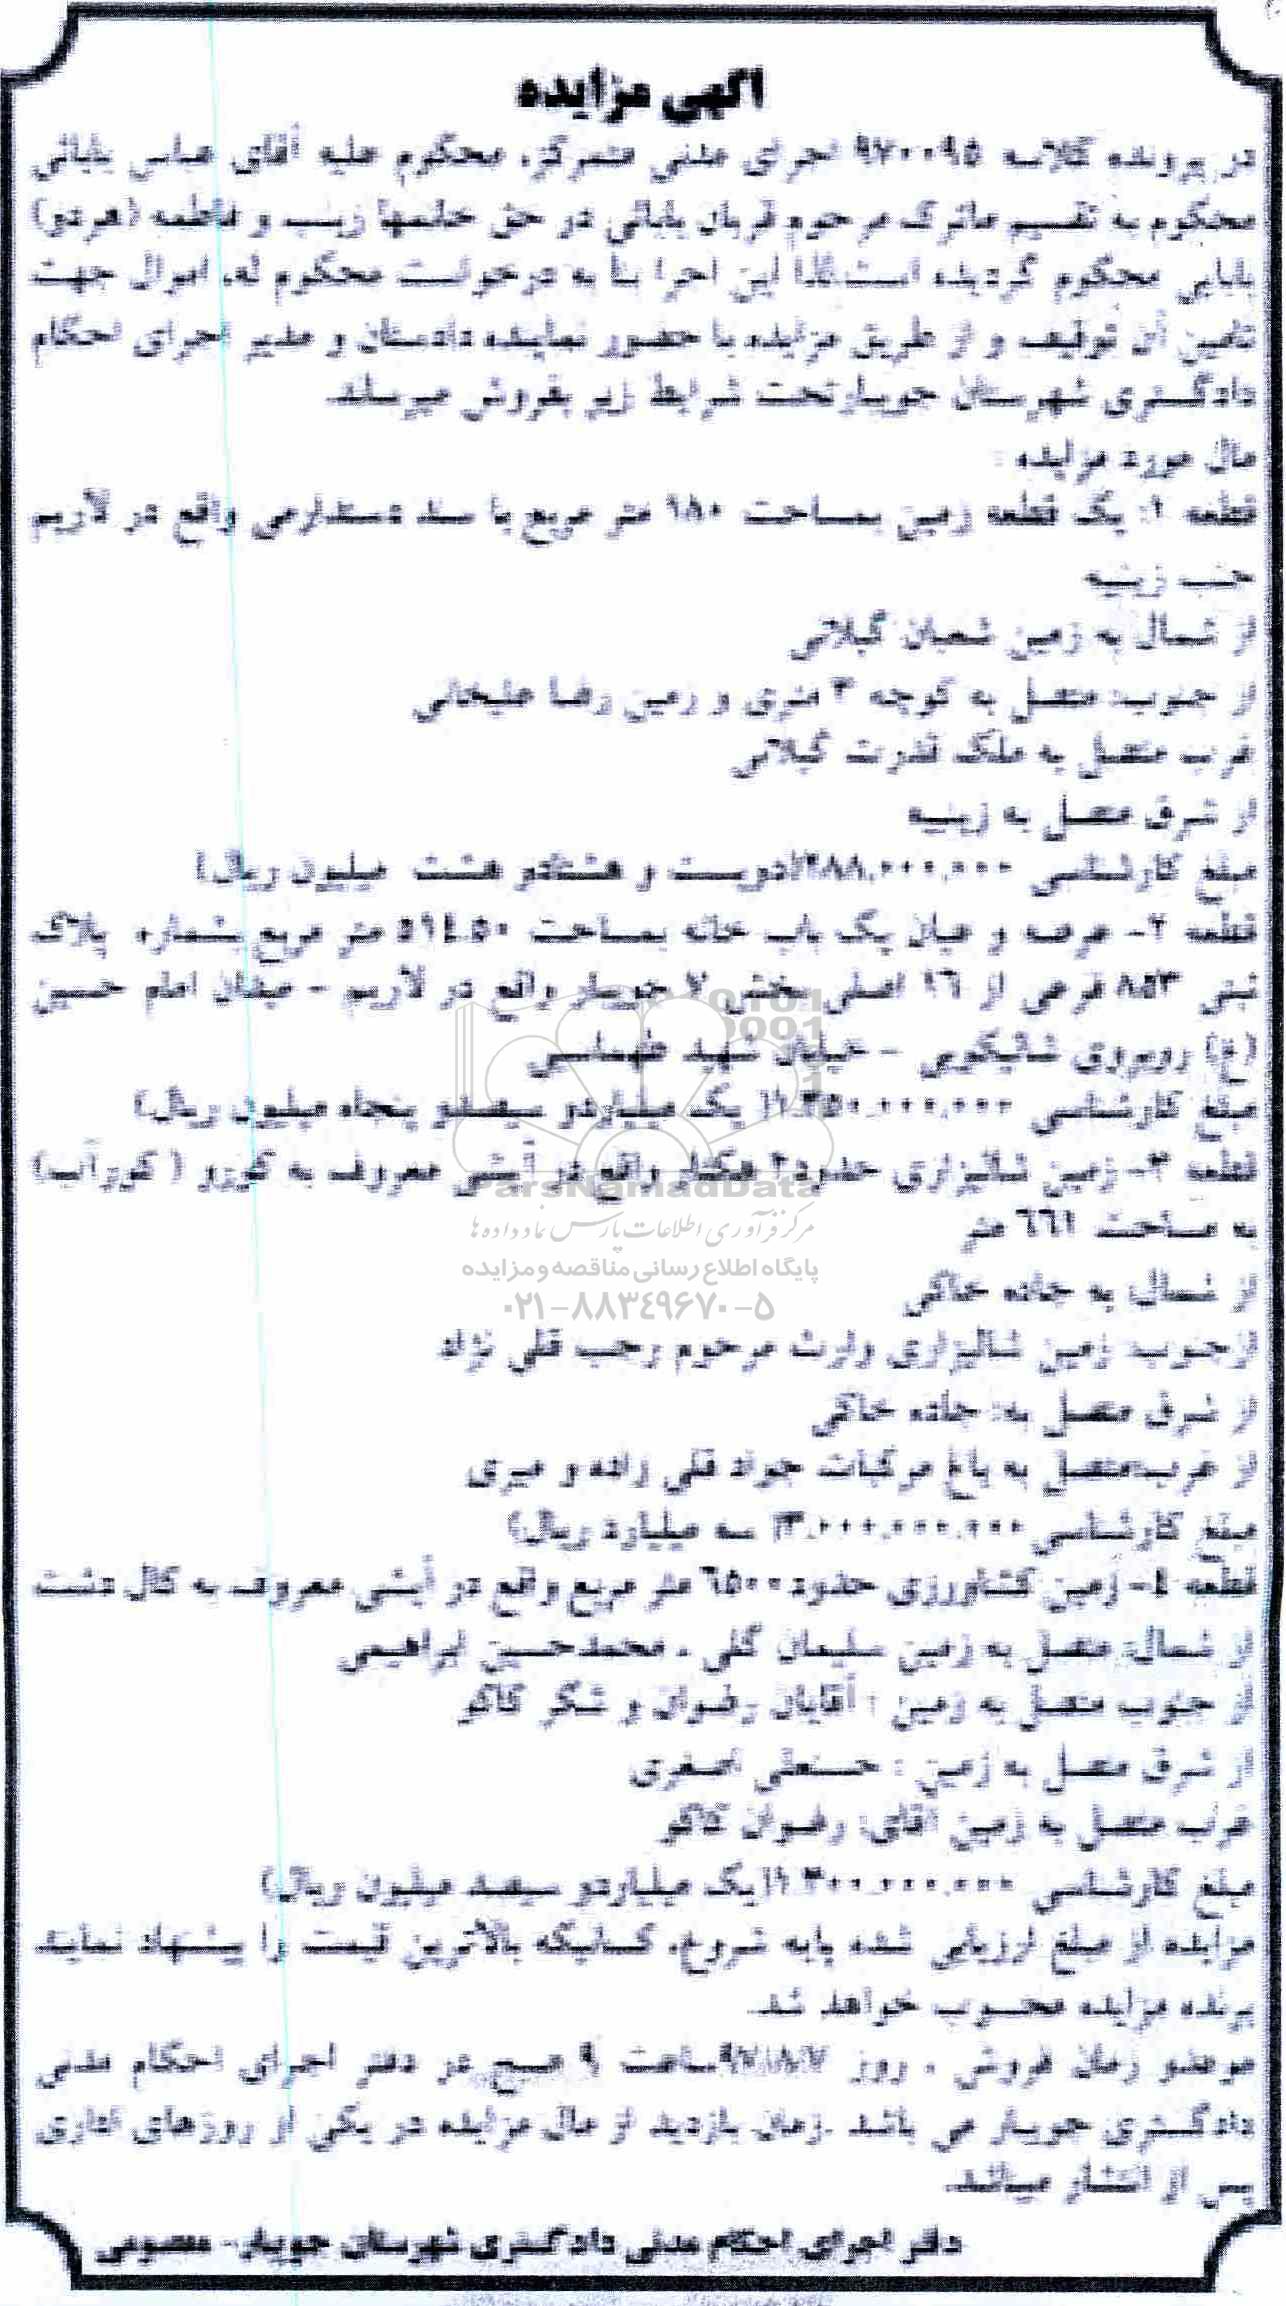 آگهی مزایده
در پرونده کلاسه ۹۷۰۰۹۵ اجرای مدنی متمرکز، محکوم علیه آقای عباس بابائی
محکوم به تقسیم ماترک مرحوم قربان بابائی در حق خانمها زینب و فاطمه (هردو)
بابایی محکوم گردیده است،لذا این اجرا بنا به درخواست محکوم له، اموال جهت
تامین آن توقیف و از طریق مزایده با حضور نماینده دادستان و مدیر اجرای احکام
دادگستری شهرستان جویبارتحت شرایط زیر بفروش میرساند.
مال مورد مزایده :
قطعه ۱: یک قطعه زمین بمساحت ۱۸۰ متر مربع با سند دستدارمی واقع در لاریم
جنب زینبیه
از شمال به زمین شعبان گیلانی
از جنوب: متصل به کوچه ۳ متری و زمین رضا علیخانی
غرب متصل به ملک قدرت گیلانی
از شرق متصل به زینبیه
مبلغ کارشناسی ۲۸۸,۰۰۰,۰۰۰(دویست و هشتادو هشت میلیون ریال)
قطعه ۲- عرصه و عیان یک باب خانه بمساحت ۵۹۴.۵۰ متر مربع بشماره پلاک
ثبتی ۸۵۳ فرعی از ۱۶ اصلی بخش ۷ جویبار واقع در لاریم - میدان امام حسین
(ع) روبروی شالیکوبی - خیابان شهید طهماسبی
مبلغ کارشناسی ۱,۳۵۰,۰۰۰,۰۰۰( یک میلیاردو سیصدو پنجاه میلیون ریال)
قطعه ۳- زمین شالیزاری حدود۲ هکتار واقع در آبشی معروف به کورو ( کورآب)
به مساحت ۶۶۱ متر
از شمال: به جاده خاکی
ازجنوب: زمین شالیزاری وارث مرحوم رجب قلی نژاد
از شرق متصل به: جاده خاکی
از غرب:متصل به باغ مرکبات جواد قلی زاده و میری
مبلغ کارشناسی ۳,۰۰۰,۰۰۰,۰۰۰( سه میلیارد ریال)
قطعه ۴- زمین کشاورزی حدود ۶۵۰۰ متر مربع واقع در آبشی معروف به کال دشت
از شمال: متصل به زمین سلیمان گلی ، محمدحسین ابراهیمی
از جنوب متصل به زمین : آقایان رضوان و شکر کاکو
از شرق متصل به زمین : حسنعلی اصغری
غرب متصل به زمین آقای: رضوان کاکو
مبلغ کارشناسی ۱,۳۰۰,۰۰۰,۰۰۰(یک میلیاردو سیصد میلیون ریال)
مزایده از مبلغ ارزیابی شده پایه شروع، کسانیکه بالاترین قیمت را پیشنهاد نماید
برنده مزایده محسوب خواهد شد.
موضو زمان فروش ، روز ۹۷/۸/۷ساعت ۹ صبح در دفتر اجرای احکام مدنی
دادگستری جویبار می باشد .زمان بازدید از مال مزایده در یکی از روزهای اداری
پس از انتشار میباشد.
دفتر اجرای احکام مدنی دادگستری شهرستان جویبار- معصومی
ParsNamadData
مرکز فرآوری اطلاعات پارس نماد داده ها
پایگاه اطلاع رسانی مناقصه و مزایده
۰۲۱-۸۸۳۴۹۶۷۰-۵